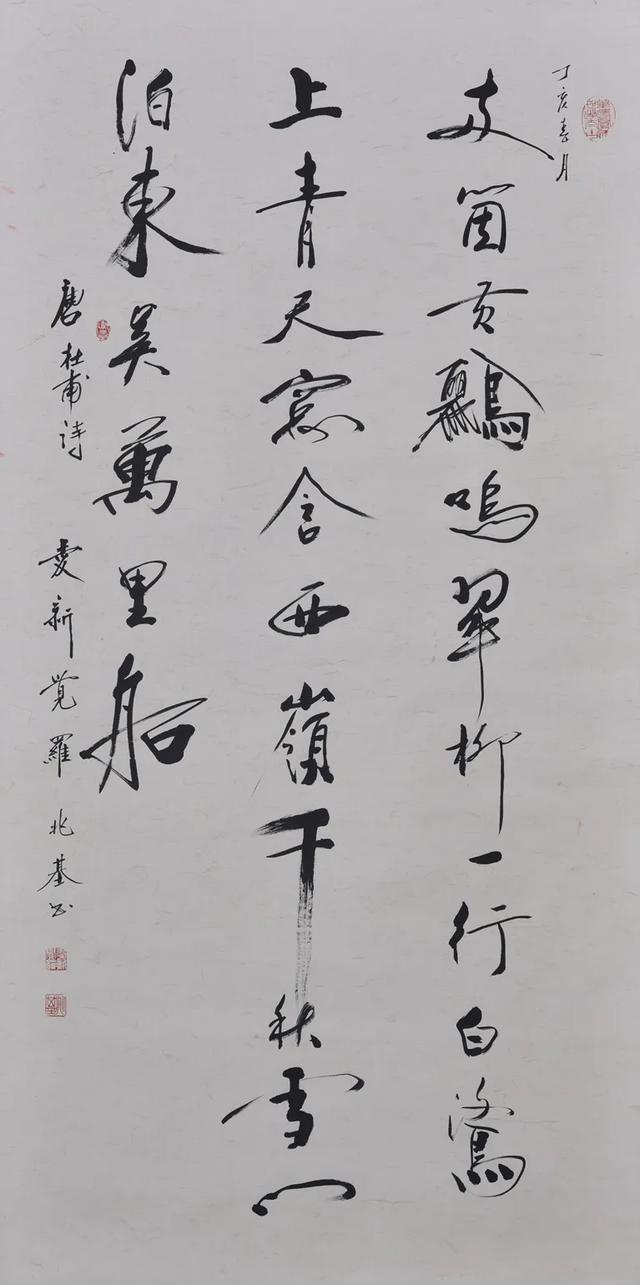 丁亥春月
兩箇黄鸝鳴翠柳一行白鷺
上青天窓含西嶺千秋雪門
泊東吳萬里船
唐杜甫詩 愛新覺羅兆基书